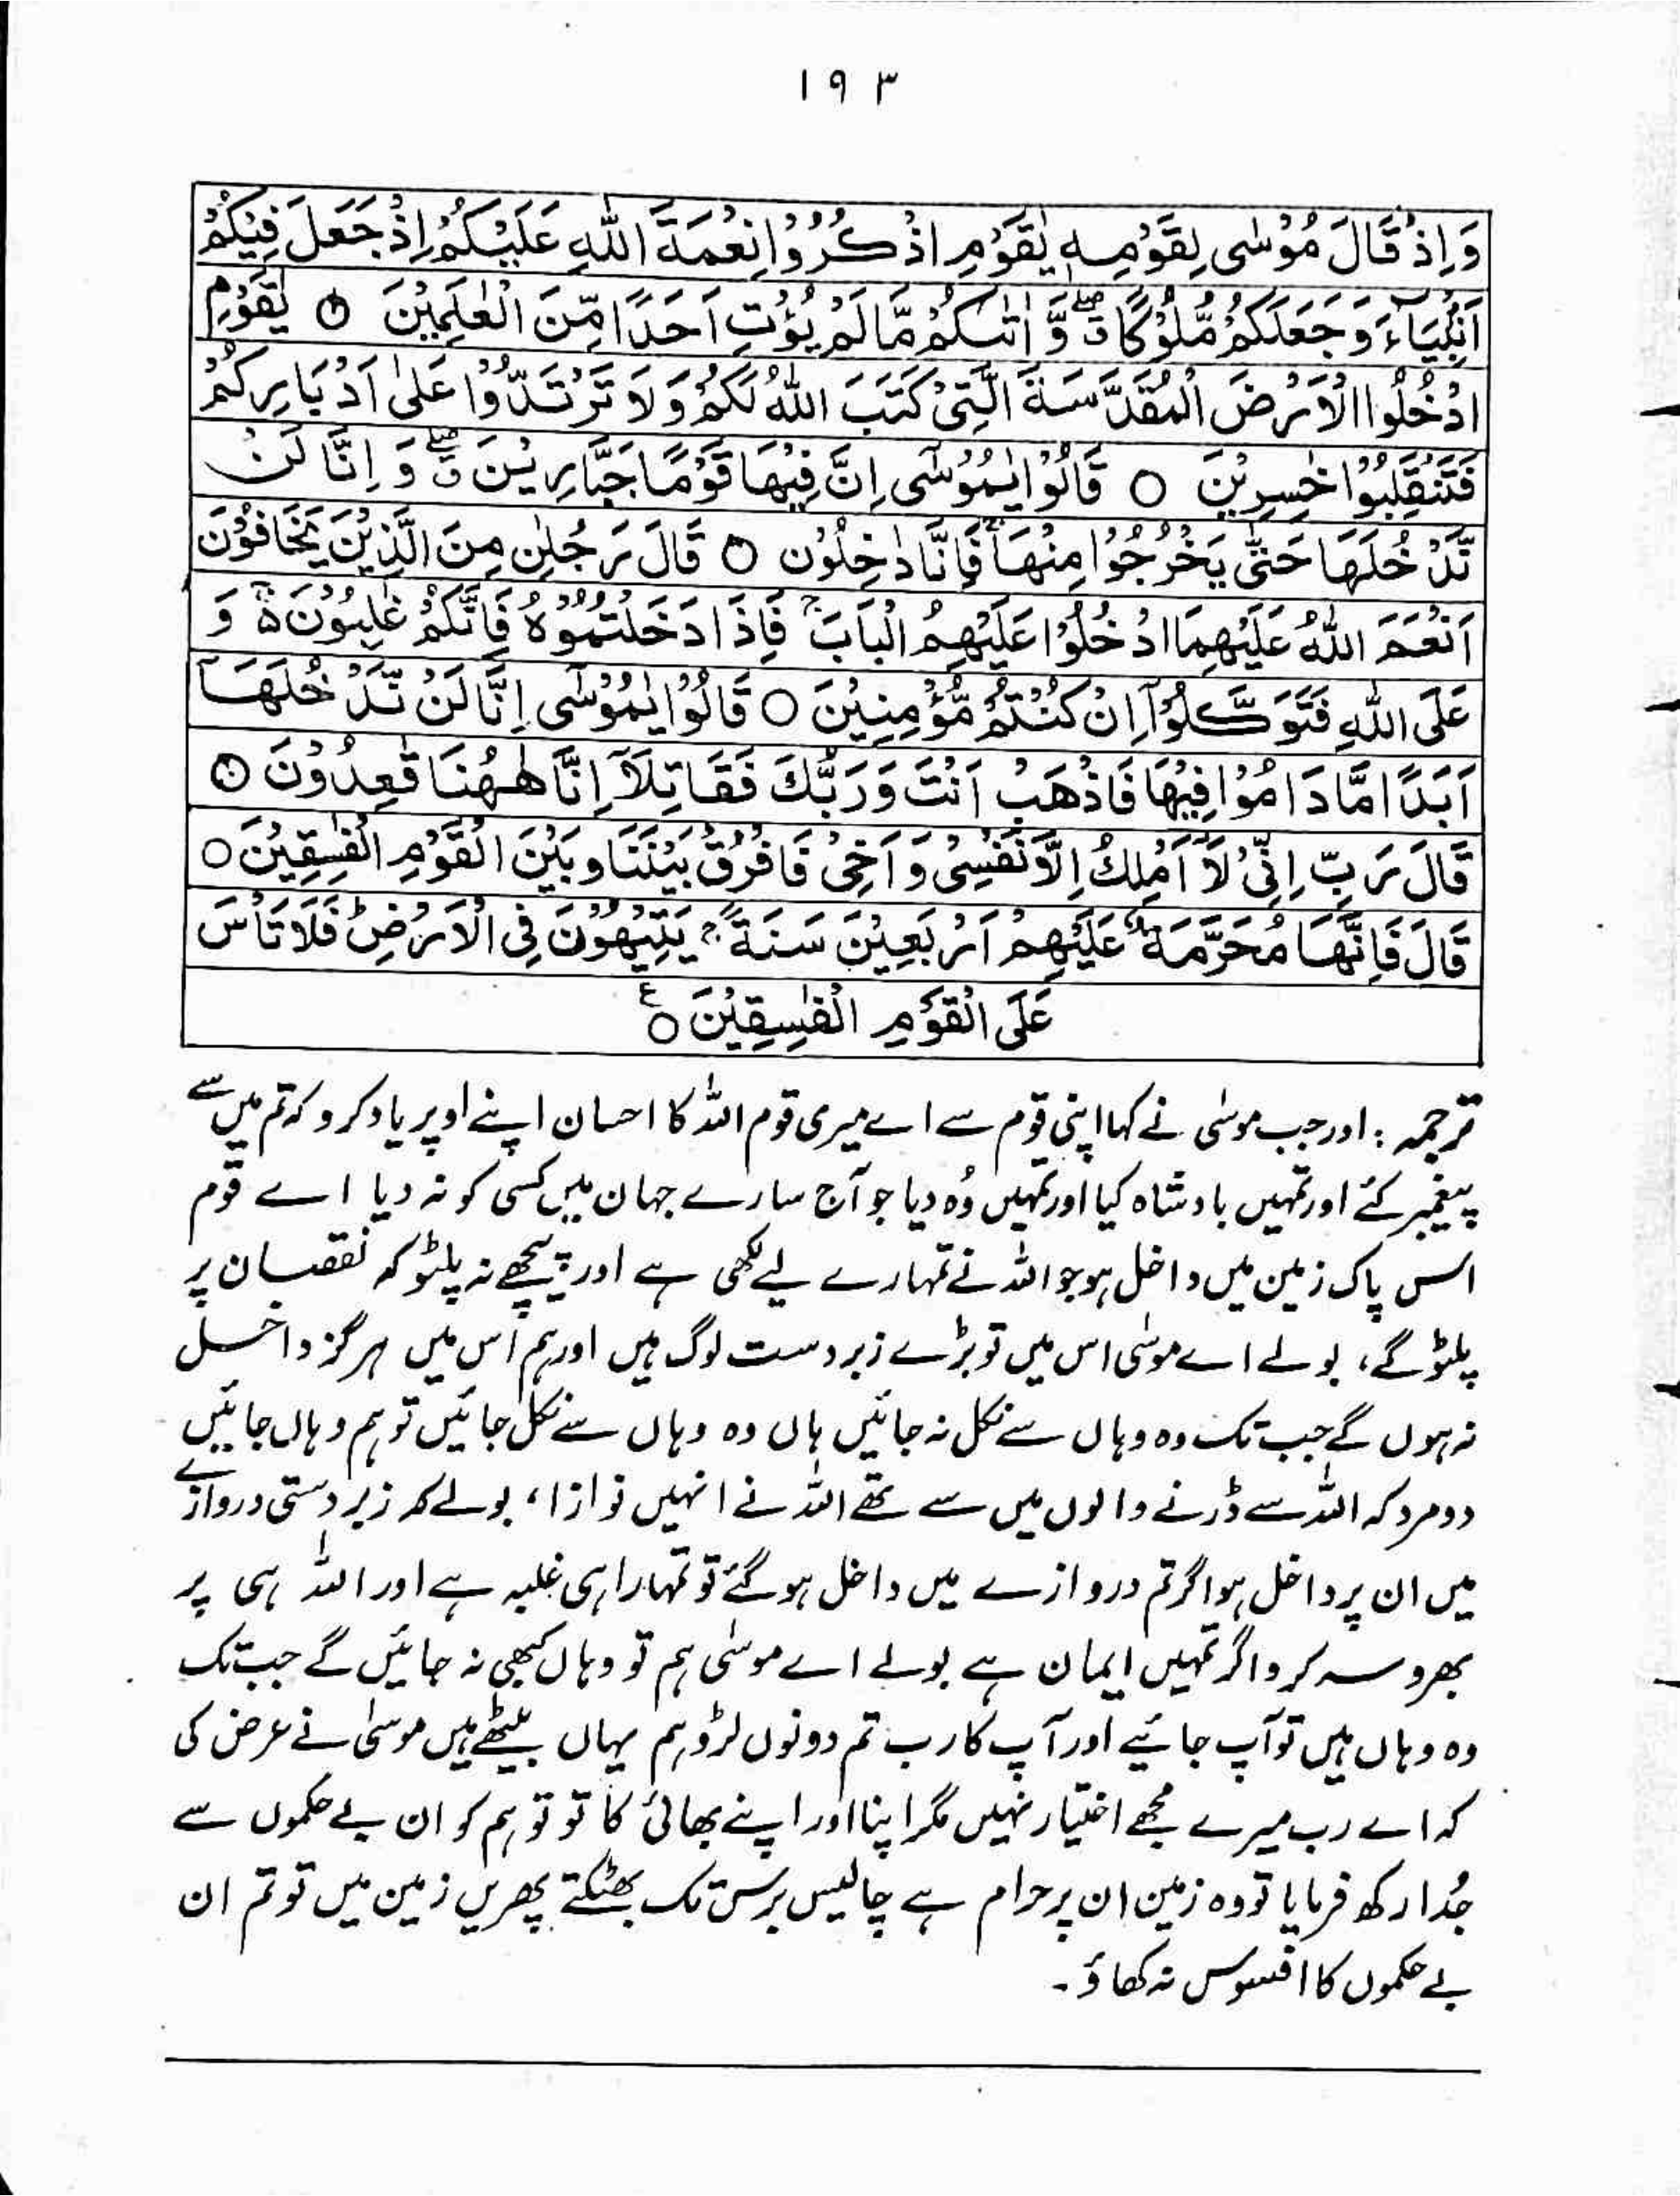 ۱۹۳
وَاِذْ قَالَ مُوْسٰی لِقَوْمِهٖ یٰقَوْمِ اذْكُرُوْا نِعْمَةَ اللّٰهِ عَلَیْكُمْ اِذْ جَعَلَ فِیْكُمْ
اَنْۢبِیَآءَ وَجَعَلَكُمْ مُّلُوْكًا ۗۖ وَّ اٰتٰىكُمْ مَّا لَمْ یُؤْتِ اَحَدًا مِّنَ الْعٰلَمِیْنَ ۝ یٰقَوْمِ
ادْخُلُوا الْاَرْضَ الْمُقَدَّسَةَ الَّتِیْ كَتَبَ اللّٰهُ لَكُمْ وَلَا تَرْتَدُّوْا عَلٰی اَدْبَارِكُمْ
فَتَنْقَلِبُوْا خٰسِرِیْنَ ۝ قَالُوْا یٰمُوْسٰۤی اِنَّ فِیْهَا قَوْمًا جَبَّارِیْنَ ۗۖ وَ اِنَّا لَنْ
نَّدْخُلَهَا حَتّٰی یَخْرُجُوْا مِنْهَا ۚ فَاِنَّا دٰخِلُوْن ۝ قَالَ رَجُلٰنِ مِنَ الَّذِیْنَ یَخَافُوْنَ
اَنْعَمَ اللّٰهُ عَلَیْهِمَا ادْخُلُوْا عَلَیْهِمُ الْبَابَ ۚ فَاِذَا دَخَلْتُمُوْهُ فَاِنَّكُمْ غٰلِبُوْنَ ۚ۬ وَ
عَلَی اللّٰهِ فَتَوَكَّلُوْۤا اِنْ كُنْتُمْ مُّؤْمِنِیْنَ ۝ قَالُوْا یٰمُوْسٰۤی اِنَّا لَنْ نَّدْخُلَهَاۤ
اَبَدًا مَّا دَامُوْا فِیْهَا فَاذْهَبْ اَنْتَ وَرَبُّكَ فَقَاتِلَاۤ اِنَّا هٰهُنَا قٰعِدُوْنَ ۝
قَالَ رَبِّ اِنِّیْ لَاۤ اَمْلِكُ اِلَّا نَفْسِیْ وَ اَخِیْ فَافْرُقْ بَیْنَنَا وبَیْنَ الْقَوْمِ الْفٰسِقِیْنَ ۝
قَالَ فَاِنَّهَا مُحَرَّمَةٌ عَلَیْهِمْ اَرْبَعِیْنَ سَنَةً ۚ یَتِیْهُوْنَ فِی الْاَرْضِ ؕ فَلَا تَاْسَ
عَلَی الْقَوْمِ الْفٰسِقِیْنَ ۝ ع
ترجمہ : اور جب موسٰی نے کہا اپنی قوم سے اے میری قوم اللہ کا احسان اپنے اوپر یاد کرو کہ تم میں سے
پیغمبر کئے اور تمہیں بادشاہ کیا اور تمہیں وُہ دیا جو آج سارے جہان میں کسی کو نہ دیا اے قوم
اس پاک زمین میں داخل ہو جو اللہ نے تمہارے لیے لکھی ہے اور پیچھے نہ پلٹو کہ نقصان پر
پلٹو گے، بولے اے موسٰی اس میں تو بڑے زبردست لوگ ہیں اور ہم اس میں ہرگز داخل
نہ ہوں گے جب تک وہ وہاں سے نکل نہ جائیں ہاں وہ وہاں سے نکل جائیں تو ہم وہاں جائیں
دو مرد کہ اللہ سے ڈرنے والوں میں سے تھے اللہ نے انہیں نوازا، بولے کہ زبردستی دروازے
میں ان پر داخل ہو اگر تم دروازے میں داخل ہو گئے تو تمہارا ہی غلبہ ہے اور اللہ ہی پر
بھروسہ کرو اگر تمہیں ایمان ہے بولے اے موسٰی ہم تو وہاں کبھی نہ جائیں گے جب تک
وہ وہاں ہیں تو آپ جائیے اور آپ کا رب تم دونوں لڑو ہم یہاں بیٹھے ہیں موسٰی نے عرض کی
کہ اے رب میرے مجھے اختیار نہیں مگر اپنا اور اپنے بھائی کا تو تو ہم کو ان بے حکموں سے
جُدا رکھ فرمایا تو وہ زمین ان پر حرام ہے چالیس برس تک بھٹکتے پھریں زمین میں تو تم ان
بے حکموں کا افسوس نہ کھاؤ۔